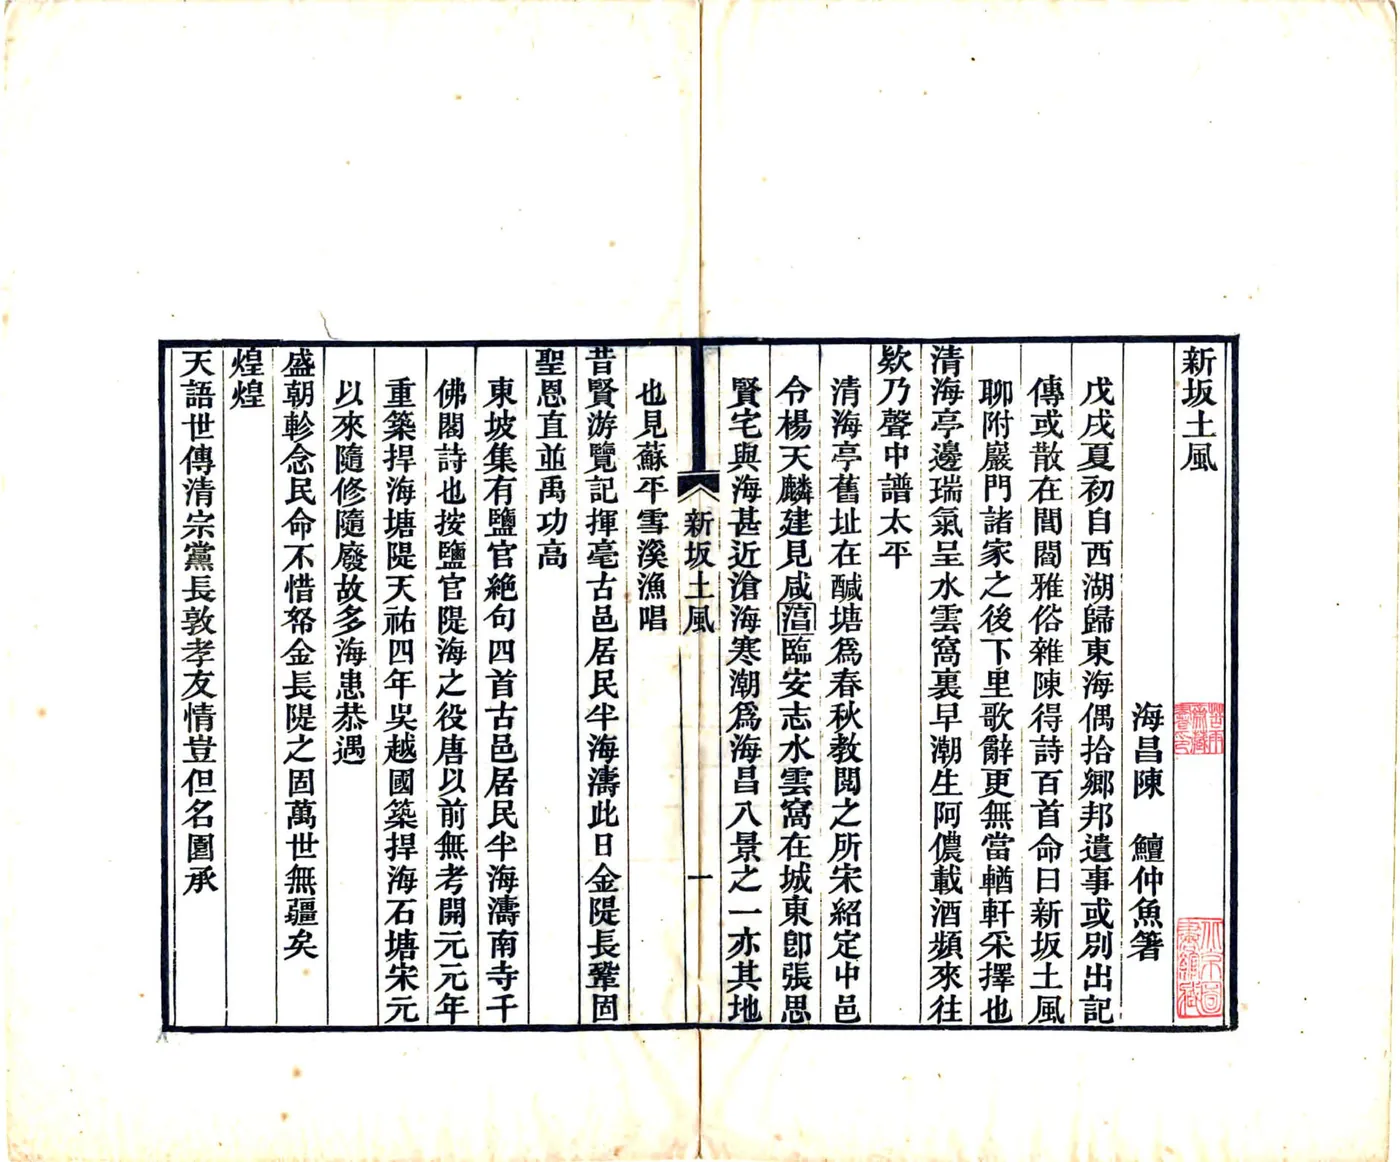 新坂土風
海昌陳　鱣仲魚箸
戊戌夏初自西湖歸東海偶拾鄉邦遺事或別出記
傳或散在閭閻雅俗雜陳得詩百首命曰新坂土風
聊附巖門諸家之後下里歌辭更無當輶軒采擇也
清海亭邊瑞氣呈水雲窩裏早潮生阿儂載酒頻來往
欸乃聲中譜太平
清海亭舊址在醎塘爲春秋教閱之所宋紹定中邑
令楊天麟建見咸淳臨安志水雲窩在城東卽張思
賢宅與海甚近滄海寒潮爲海昌八景之一亦其地
也見蘇平雪溪漁唱
昔賢游覽記揮毫古邑居民半海濤此日金隄長鞏固
聖恩直並禹功高
東坡集有鹽官絶句四首古邑居民半海濤南寺千
佛閣詩也按鹽官隄海之役唐以前無考開元元年
重築捍海塘隄天祐四年吳越國築捍海石塘宋元
以來隨修隨廢故多海患恭遇
盛朝軫念民命不惜帑金長隄之固萬世無疆矣
煌煌
天語世傳清宗黨長敦孝友情豈但名園承
新坂土風
一